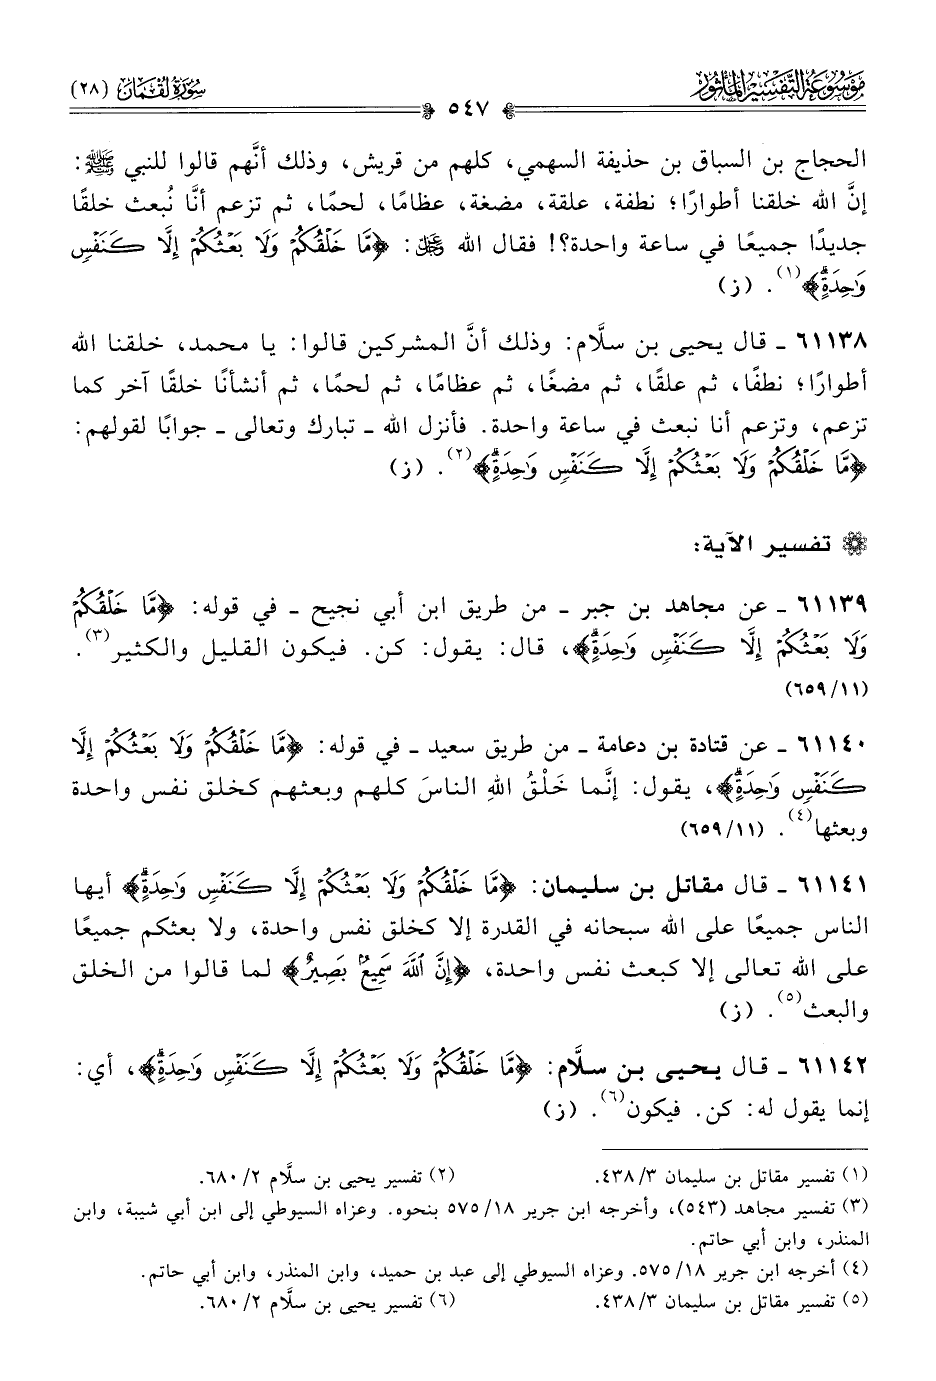 موسوعة التفسير المأثور
سورة لقمان (٢٨)
٥٤٧
الحجاج بن السباق بن حذيفة السهمي، كلهم من قريش، وذلك أنَّهم قالوا للنبي ﷺ:
إنَّ الله خلقنا أطوارًا؛ نطفة، علقة، مضغة، عظامًا، لحمًا، ثم تزعم أنَّا نُبعث خلقًا
جديدًا جميعًا في ساعة واحدة؟! فقال الله ﷻ: ﴿مَّا خَلْقُكُمْ وَلَا بَعْثُكُمْ إِلَّا كَنَفْسٍ
وَاحِدَةٍ﴾(١). (ز)
٦١١٣٨ ـ قال يحيى بن سلَّام: وذلك أنَّ المشركين قالوا: يا محمد، خلقنا الله
أطوارًا؛ نطفًا، ثم علقًا، ثم مضغًا، ثم عظامًا، ثم لحمًا، ثم أنشأنًا خلقًا آخر كما
تزعم، وتزعم أنا نبعث في ساعة واحدة. فأنزل الله ـ تبارك وتعالى ـ جوابًا لقولهم:
﴿مَّا خَلْقُكُمْ وَلَا بَعْثُكُمْ إِلَّا كَنَفْسٍ وَاحِدَةٍ﴾(٢). (ز)
تفسير الآية:
٦١١٣٩ ـ عن مجاهد بن جبر ـ من طريق ابن أبي نجيح ـ في قوله: ﴿مَّا خَلْقُكُمْ
وَلَا بَعْثُكُمْ إِلَّا كَنَفْسٍ وَاحِدَةٍ﴾، قال: يقول: كن. فيكون القليل والكثير(٣).
(٦٥٩/١١)
٦١١٤٠ ـ عن قتادة بن دعامة ـ من طريق سعيد ـ في قوله: ﴿مَّا خَلْقُكُمْ وَلَا بَعْثُكُمْ إِلَّا
كَنَفْسٍ وَاحِدَةٍ﴾، يقول: إنَّما خَلْقُ اللهِ الناسَ كلهم وبعثهم كخلق نفس واحدة
وبعثها(٤). (٦٥٩/١١)
٦١١٤١ ـ قال مقاتل بن سليمان: ﴿مَّا خَلْقُكُمْ وَلَا بَعْثُكُمْ إِلَّا كَنَفْسٍ وَاحِدَةٍ﴾ أيها
الناس جميعًا على الله سبحانه في القدرة إلا كخلق نفس واحدة، ولا بعثكم جميعًا
على الله تعالى إلا كبعث نفس واحدة، ﴿إِنَّ ٱللَّهَ سَمِيعٌ بَصِيرٌ﴾ لما قالوا من الخلق
والبعث(٥). (ز)
٦١١٤٢ ـ قال يحيى بن سلَّام: ﴿مَّا خَلْقُكُمْ وَلَا بَعْثُكُمْ إِلَّا كَنَفْسٍ وَاحِدَةٍ﴾، أي:
إنما يقول له: كن. فيكون(٦). (ز)
(١) تفسير مقاتل بن سليمان ٤٣٨/٣.
(٢) تفسير يحيى بن سلَّام ٦٨٠/٢.
(٣) تفسير مجاهد (٥٤٣)، وأخرجه ابن جرير ٥٧٥/١٨ بنحوه. وعزاه السيوطي إلى ابن أبي شيبة، وابن
المنذر، وابن أبي حاتم.
(٤) أخرجه ابن جرير ٥٧٥/١٨. وعزاه السيوطي إلى عبد بن حميد، وابن المنذر، وابن أبي حاتم.
(٥) تفسير مقاتل بن سليمان ٤٣٨/٣.
(٦) تفسير يحيى بن سلَّام ٦٨٠/٢.